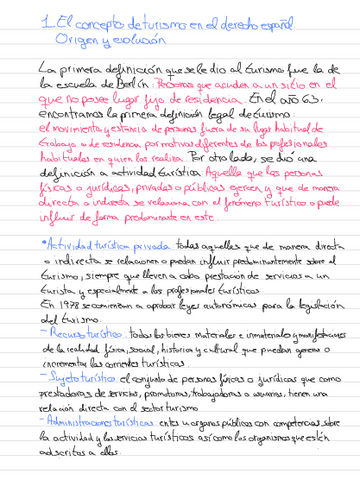 1. El concepto de turismo en el derecho español
Origen y evolución
La primera definición que se le dio al turismo fue la de
la escuela de Berlín. Personas que acuden a un sitio en el
que no posee lugar fijo de residencia. En el año 63,
encontramos la primera definición legal de turismo:
el movimiento y estancia de personas fuera de su lugar habitual de
trabajo o de residencia por motivos diferentes de los profesionales
habituales en quien las realiza. Por otro lado, se dio una
definición a actividad turística Aquella que las personas
físicas o jurídicas, privadas o públicas ejercen y que de manera
directa o indirecta se relaciona con el fenómeno turístico o puede
influir de forma predominante en este.
*Actividad turística privada: todas aquellas que de manera directa
o indirecta se relacionen o puedan influir predominantemente sobre el
turismo, siempre que lleven a cabo prestación de servicios a un
turista y especialmente a los profesionales turísticos.
En 1978 se comienzan a aprobar leyes autonómicas para la legislación
del turismo.
- Recurso turístico: todos los bienes materiales e inmateriales y manifestaciones
de la realidad física, social, historica y cultural que puedan generar o
incrementar las corrientes turísticas.
- Sujeto turístico: el conjunto de personas físicas o jurídicas que como
prestadoras de servicios, promotoras, trabajadoras o usuarios, tienen una
relación directa con el sector turismo
- Administraciones turísticas: entes u organos públicos con competencias sobre
la actividad y los servicios turísticos así como los organismos que estén
adscritos a ellas.